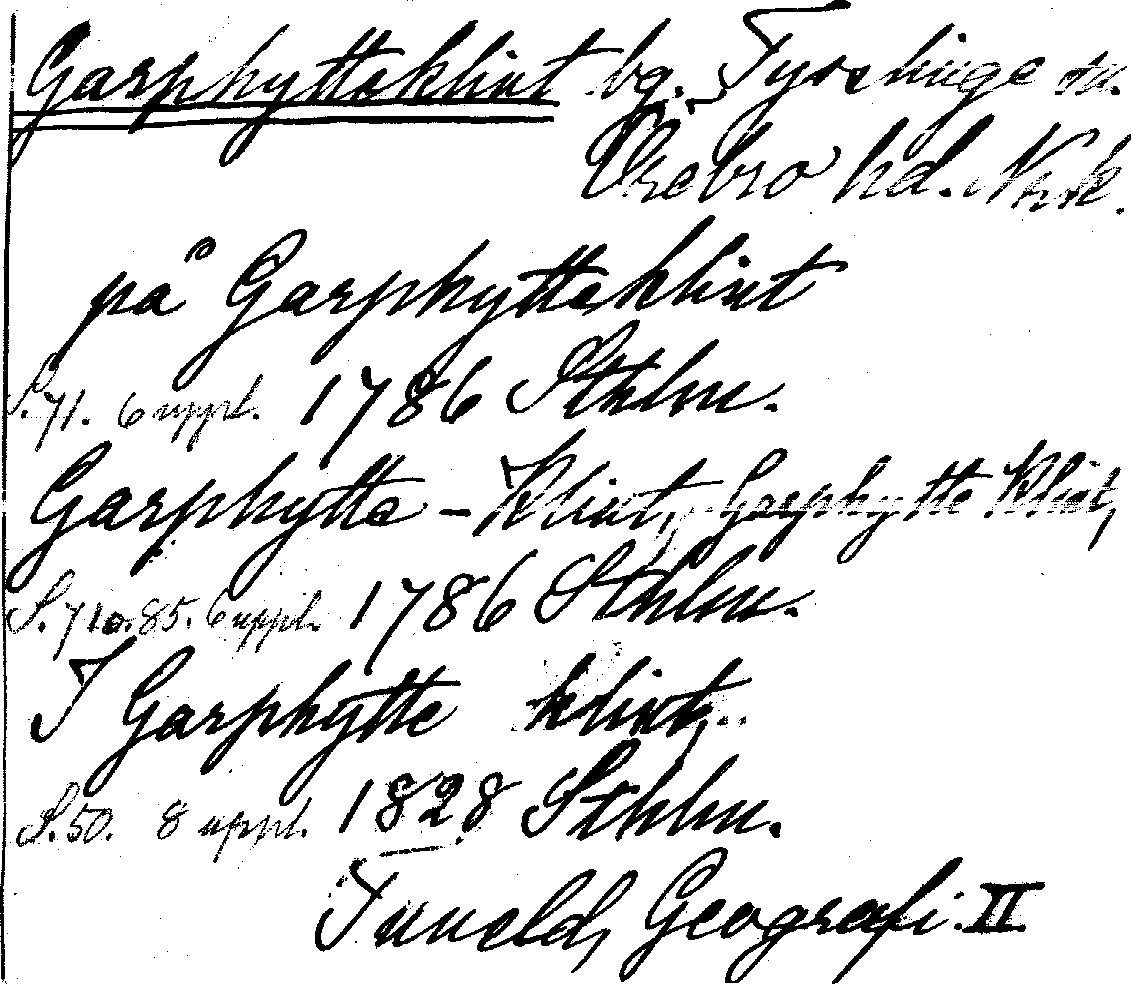 Garphytteklint bg. Tysslinge sn.
Örebro hd. Nrk.
på Garphytteklint
S. 71. 6 uppl. 1786 Sthlm.
Garphytte-Klint, Garphytte Klint,
S. 71 o. 85. 6 uppl. 1786 Sthlm.
I Garphytte klint,
S. 50. 8 uppl. 1828 Sthlm.
Tuneld, Geografi. II